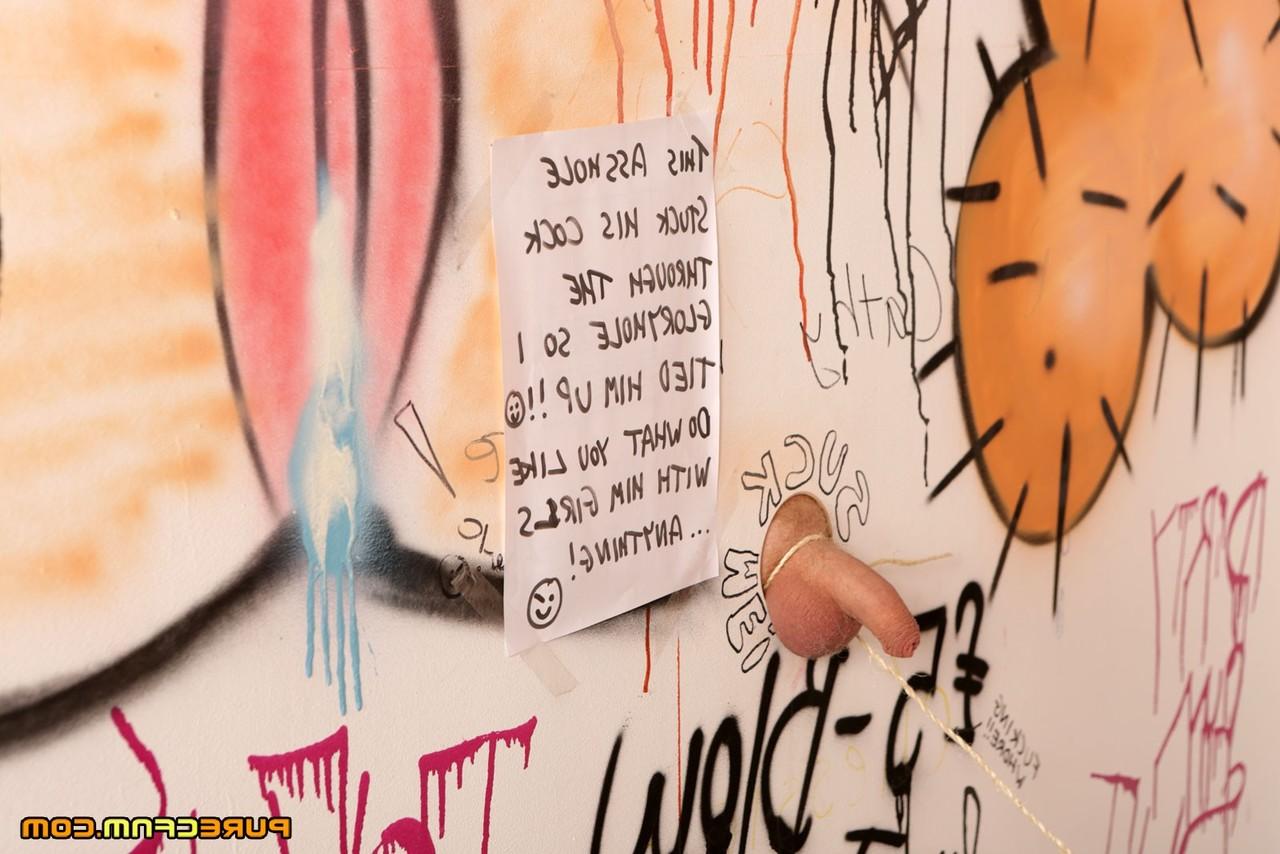 THIS ASSHOLE
STUCK HIS COCK
THROUGH THE
GLORYHOLE SO I
TIED HIM UP!!
DO WHAT YOU LIKE
WITH HIM GIRLS
... ANYTHING!
SUCK
ME!
£5
-a-
Blow
FUCKING
WHORE!!
DIRTY
PURECFNM.COM